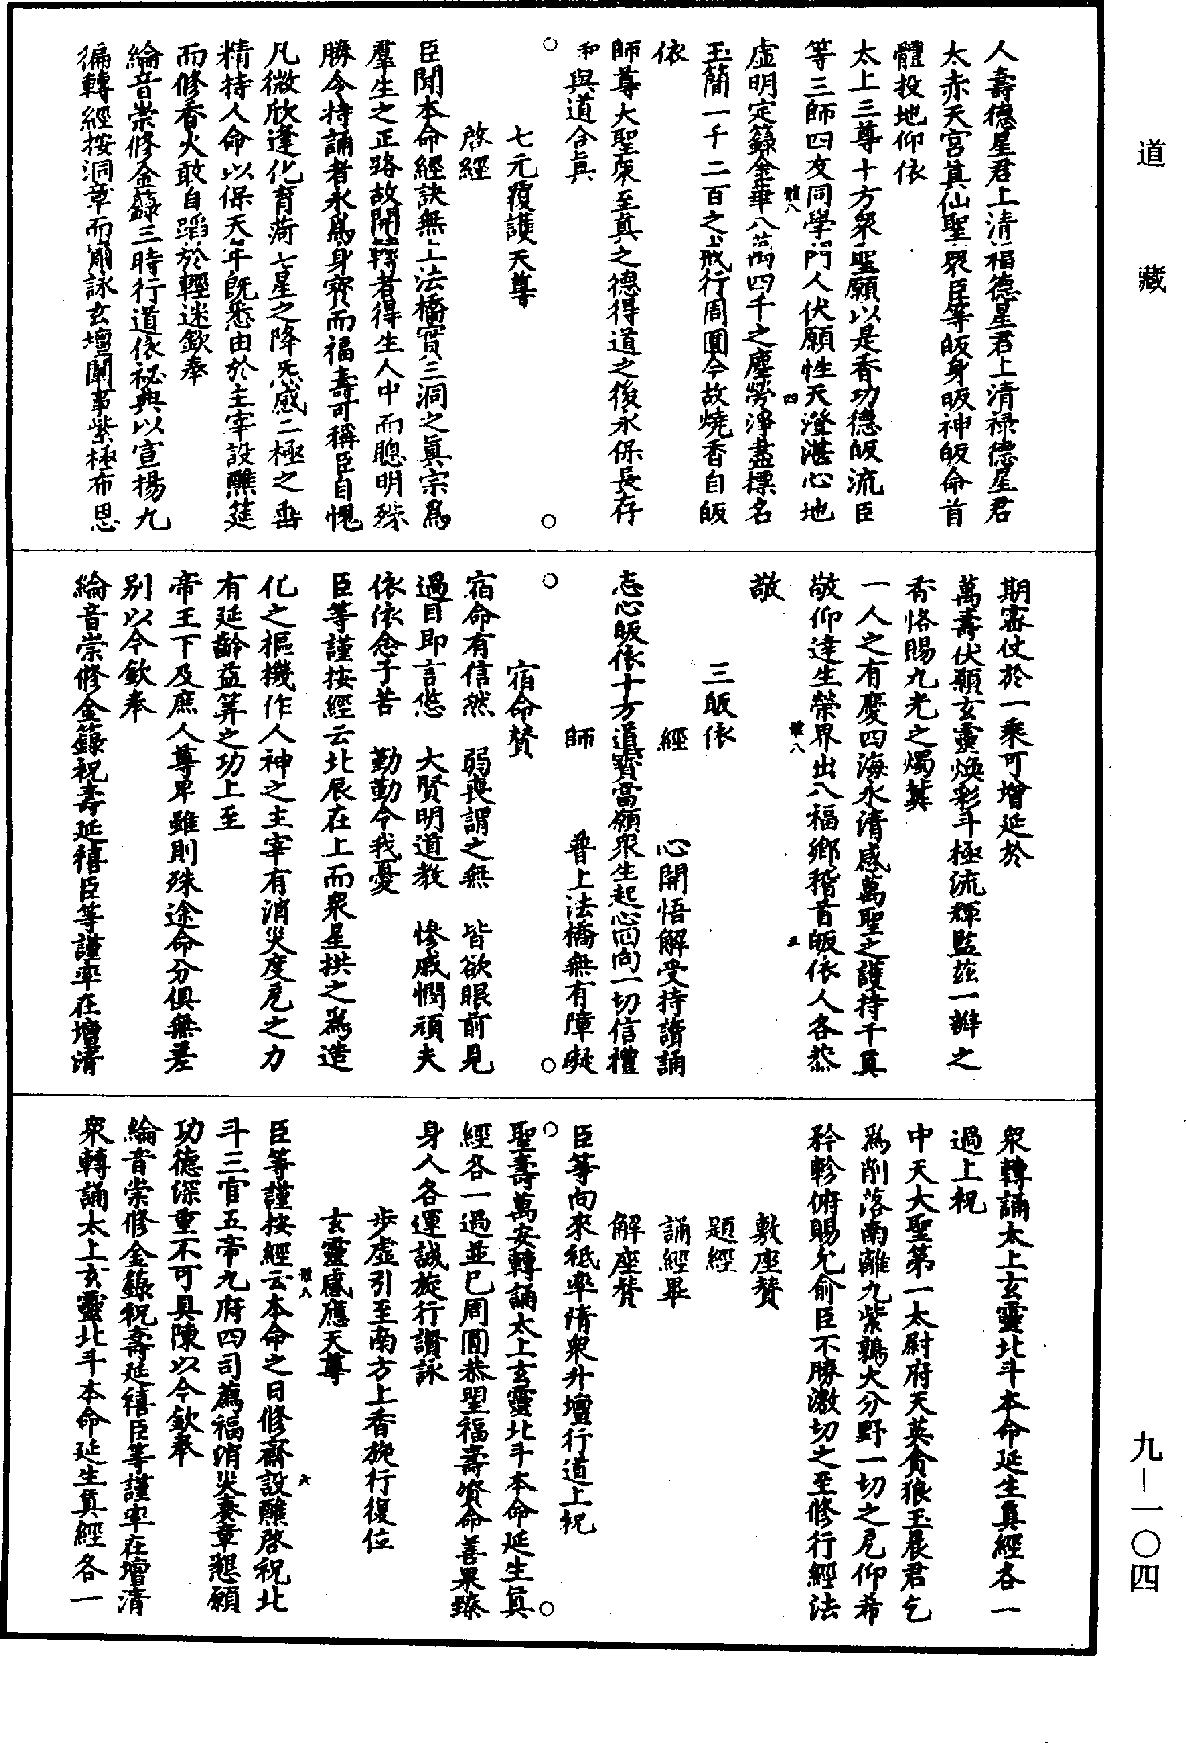 道藏
九—一〇四
人壽德星君上清福德星君上清祿德星君
太赤天宮真仙聖眾臣等皈身皈神皈命首
體投地仰依
太上三尊十方眾聖願以是香功德皈流臣
等三師四友同學門人伏願性天澄湛心地
虛明定籙金華八萬四千之塵勞淨盡標名
玉簡一千二百之戒行周圓今故燒香自皈
依
師尊大聖眾至真之德得道之後永保長存
和與道合真
七元覆護天尊
啓經
臣聞本命經訣無上法橋實三洞之真宗為
羣生之正路故開轉者得生人中而聰明殊
勝令持誦者永為身寶而福壽可稱臣自愧
凡微欣逢化育荷七星之降炁感二極之垂
精持人命以保天年既悉由於主宰設醮筵
而修香火敢自蹈於輕迷欽奉
綸音崇修金籙三時行道依祕典以宣揚九
徧轉經按洞章而嘯詠玄壇闡事紫極布恩
期密仗於一乘可增延於
萬壽伏願玄靈煥彩斗極流輝監茲一瓣之
香恪賜九光之燭冀
一人之有慶四海永清感萬聖之護持千真
敬仰達生榮界出八福鄉稽首皈依人各恭
敬
三皈依
經 心開悟解受持讀誦
志心皈依十方道寶當願眾生起心回向一切信禮
師 普上法橋無有障礙
宿命讚
宿命有信然 弱喪謂之無 皆欲眼前見
過目即言悠 大賢明道教 慘戚憫頑夫
依依念子苦 勤勤令我憂
臣等謹按經云北辰在上而眾星拱之為造
化之樞機作人神之主宰有消災度厄之力
有延齡益筭之功上至
帝王下及庶人尊卑雖則殊途命分俱無差
別以今欽奉
綸音崇修金籙祝壽延禧臣等謹率在壇清
眾轉誦太上玄靈北斗本命延生真經各一
過上祝
中天大聖第一太尉府天英貪狼玉晨君乞
為削落南離九紫鶉火分野一切之厄仰希
矜軫俯賜允俞臣不勝激切之至修行經法
敷座讚
題經
誦經畢
解座讚
臣等向來祗率脩眾升壇行道上祝
聖壽萬安轉誦太上玄靈北斗本命延生真
經各一過並已周圓恭望福壽資命善果臻
身人各運誠旋行讚詠
步虛引至南方上香旋行復位
玄靈感應天尊
臣等謹按經云本命之日修齋設醮啓祝北
斗三官五帝九府四司薦福消災奏章懇願
功德深重不可具陳以今欽奉
綸音崇修金籙祝壽延禧臣等謹率在壇清
眾轉誦太上玄靈北斗本命延生真經各一